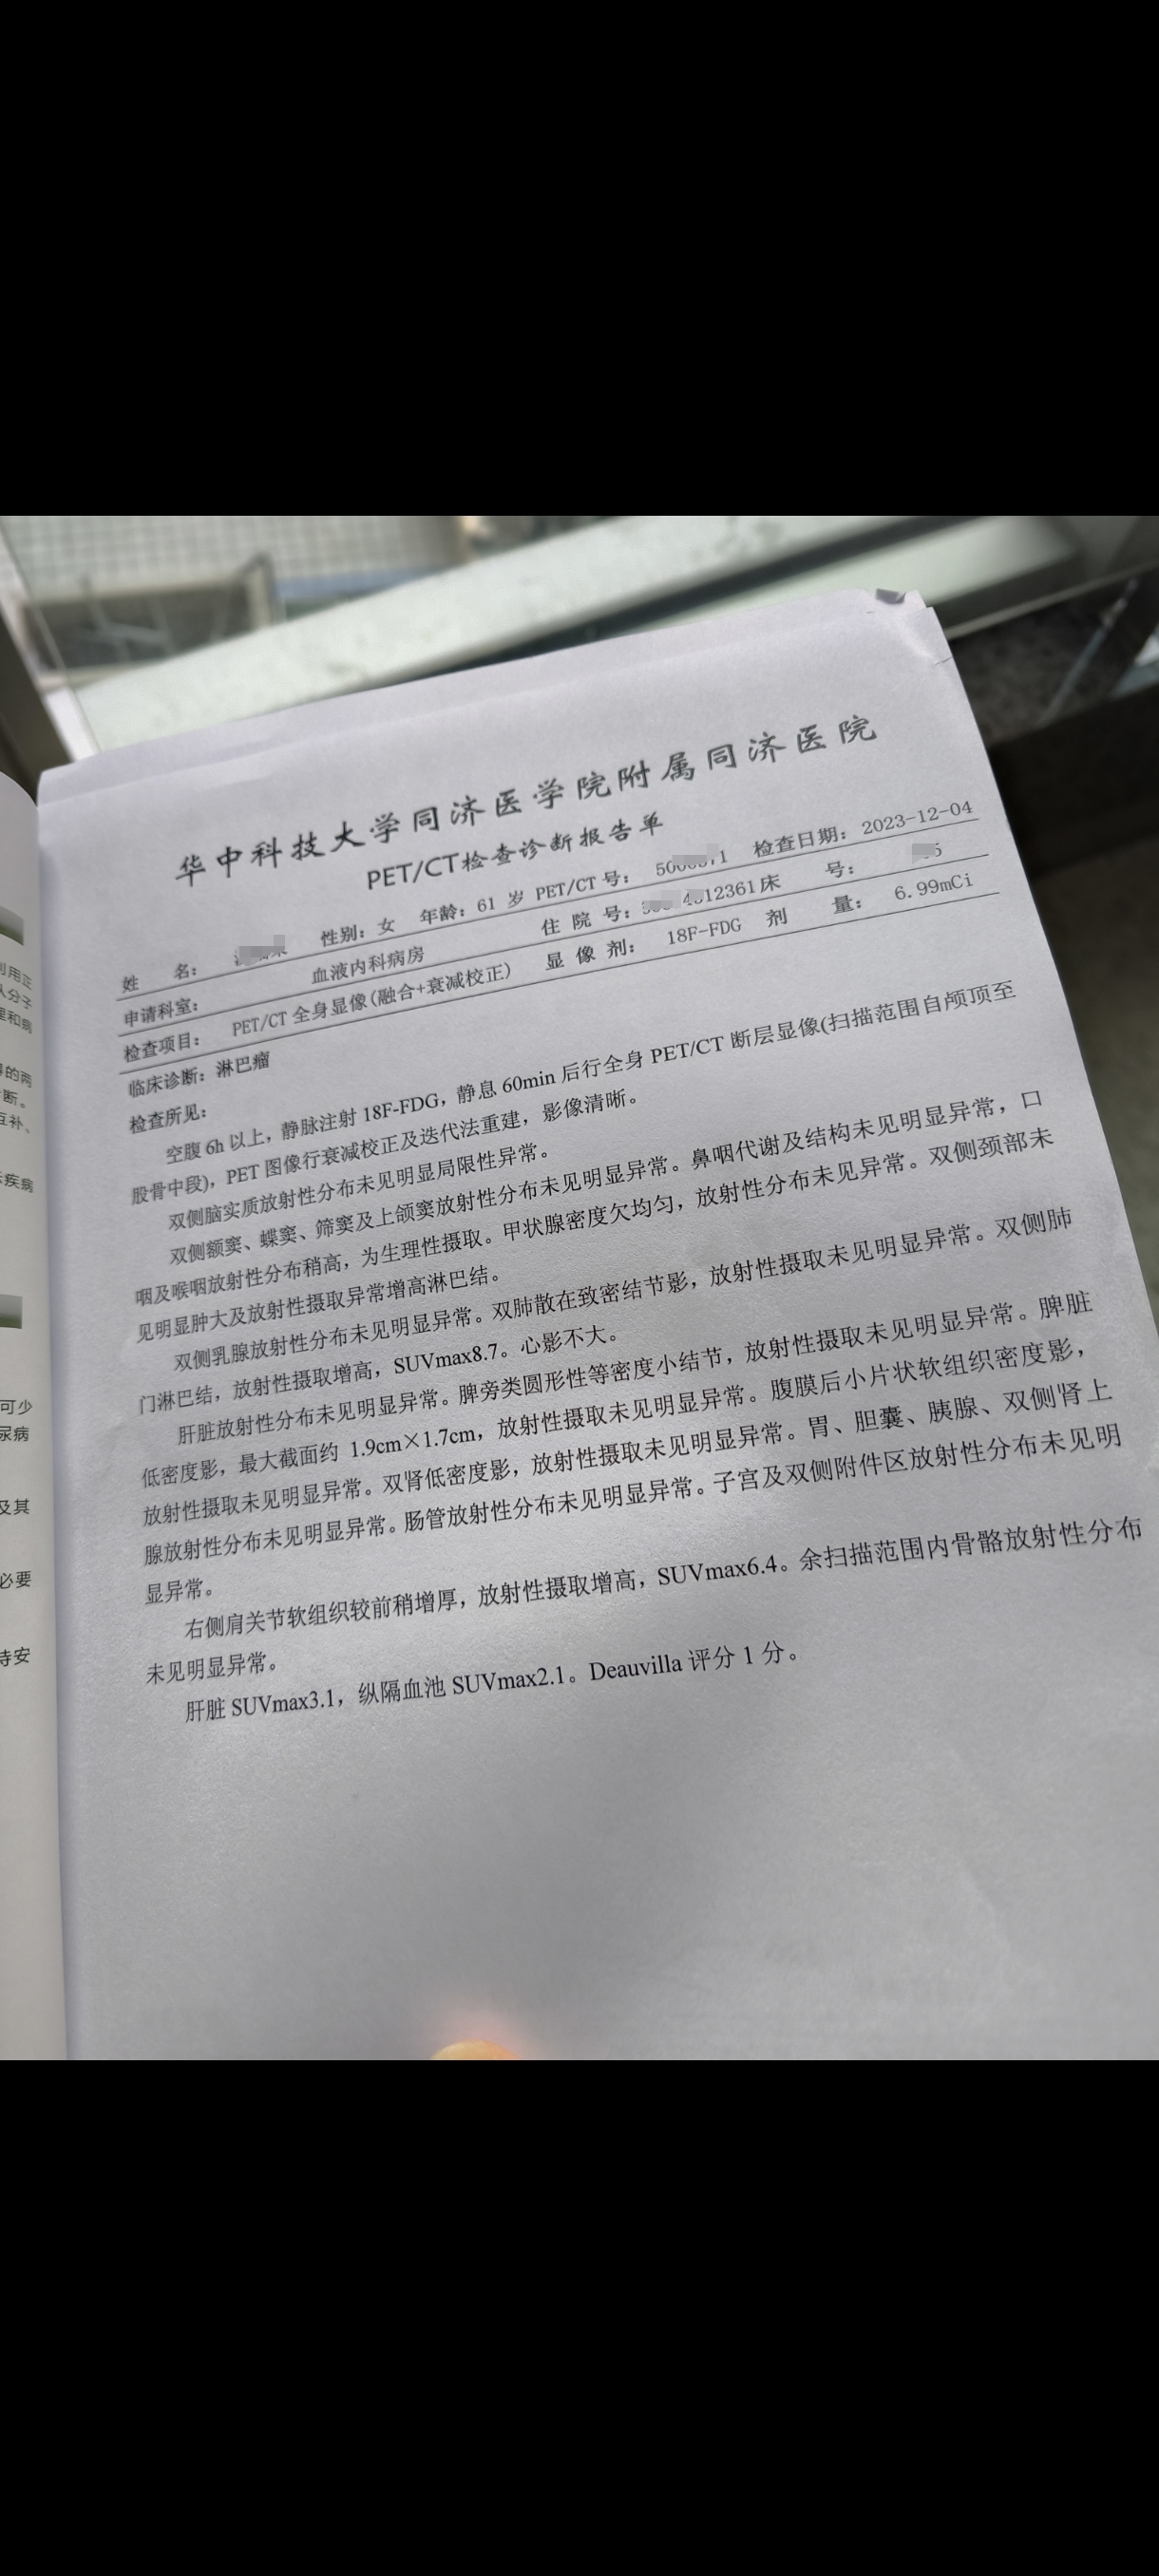 华中科技大学同济医学院附属同济医院
PET/CT检查诊断报告单
姓 名: 性别: 女 年龄: 61 岁 PET/CT 号: 检查日期: 2023-12-04
申请科室: 血液内科病房 住 院 号: 12361 床 号:
检查项目: PET/CT 全身显像(融合+衰减校正) 显 像 剂: 18F-FDG 剂 量: 6.99mCi
临床诊断: 淋巴瘤
检查所见:
空腹 6h 以上，静脉注射 18F-FDG，静息 60min 后行全身 PET/CT 断层显像(扫描范围自颅顶至
股骨中段)，PET 图像行衰减校正及迭代法重建，影像清晰。
双侧脑实质放射性分布未见明显局限性异常。
双侧额窦、蝶窦、筛窦及上颌窦放射性分布未见明显异常。鼻咽代谢及结构未见明显异常，口
咽及喉咽放射性分布稍高，为生理性摄取。甲状腺密度欠均匀，放射性分布未见异常。双侧颈部未
见明显肿大及放射性摄取异常增高淋巴结。
双侧乳腺放射性分布未见明显异常。双肺散在致密结节影，放射性摄取未见明显异常。双侧肺
门淋巴结，放射性摄取增高，SUVmax8.7。心影不大。
肝脏放射性分布未见明显异常。脾旁类圆形性等密度小结节，放射性摄取未见明显异常。脾脏
低密度影，最大截面约 1.9cm×1.7cm，放射性摄取未见明显异常。腹膜后小片状软组织密度影，
放射性摄取未见明显异常。双肾低密度影，放射性摄取未见明显异常。胃、胆囊、胰腺、双侧肾上
腺放射性分布未见明显异常。肠管放射性分布未见明显异常。子宫及双侧附件区放射性分布未见明
显异常。
右侧肩关节软组织较前稍增厚，放射性摄取增高，SUVmax6.4。余扫描范围内骨骼放射性分布
未见明显异常。
肝脏 SUVmax3.1，纵隔血池 SUVmax2.1。Deauvilla 评分 1 分。
利用正
从分子
理和病
的两
断。
互补、
疾病
可少
尿病
及其
必要
持安